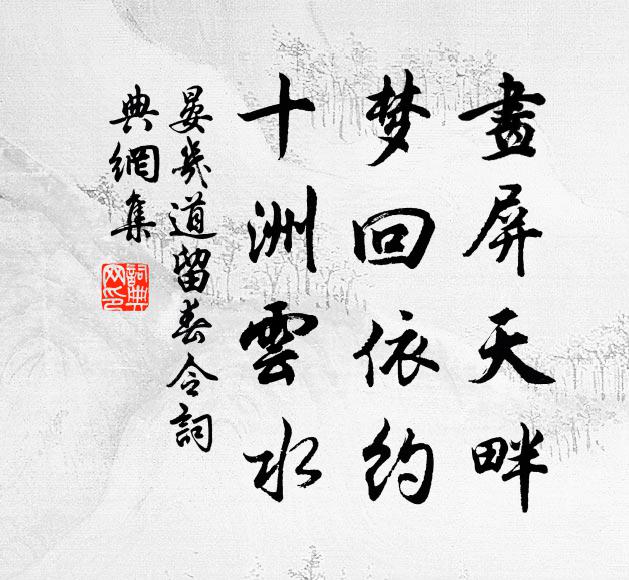 畫屏天畔
梦回依約
十洲雲水
晏幾道留春令詞
典網集
詞典网印